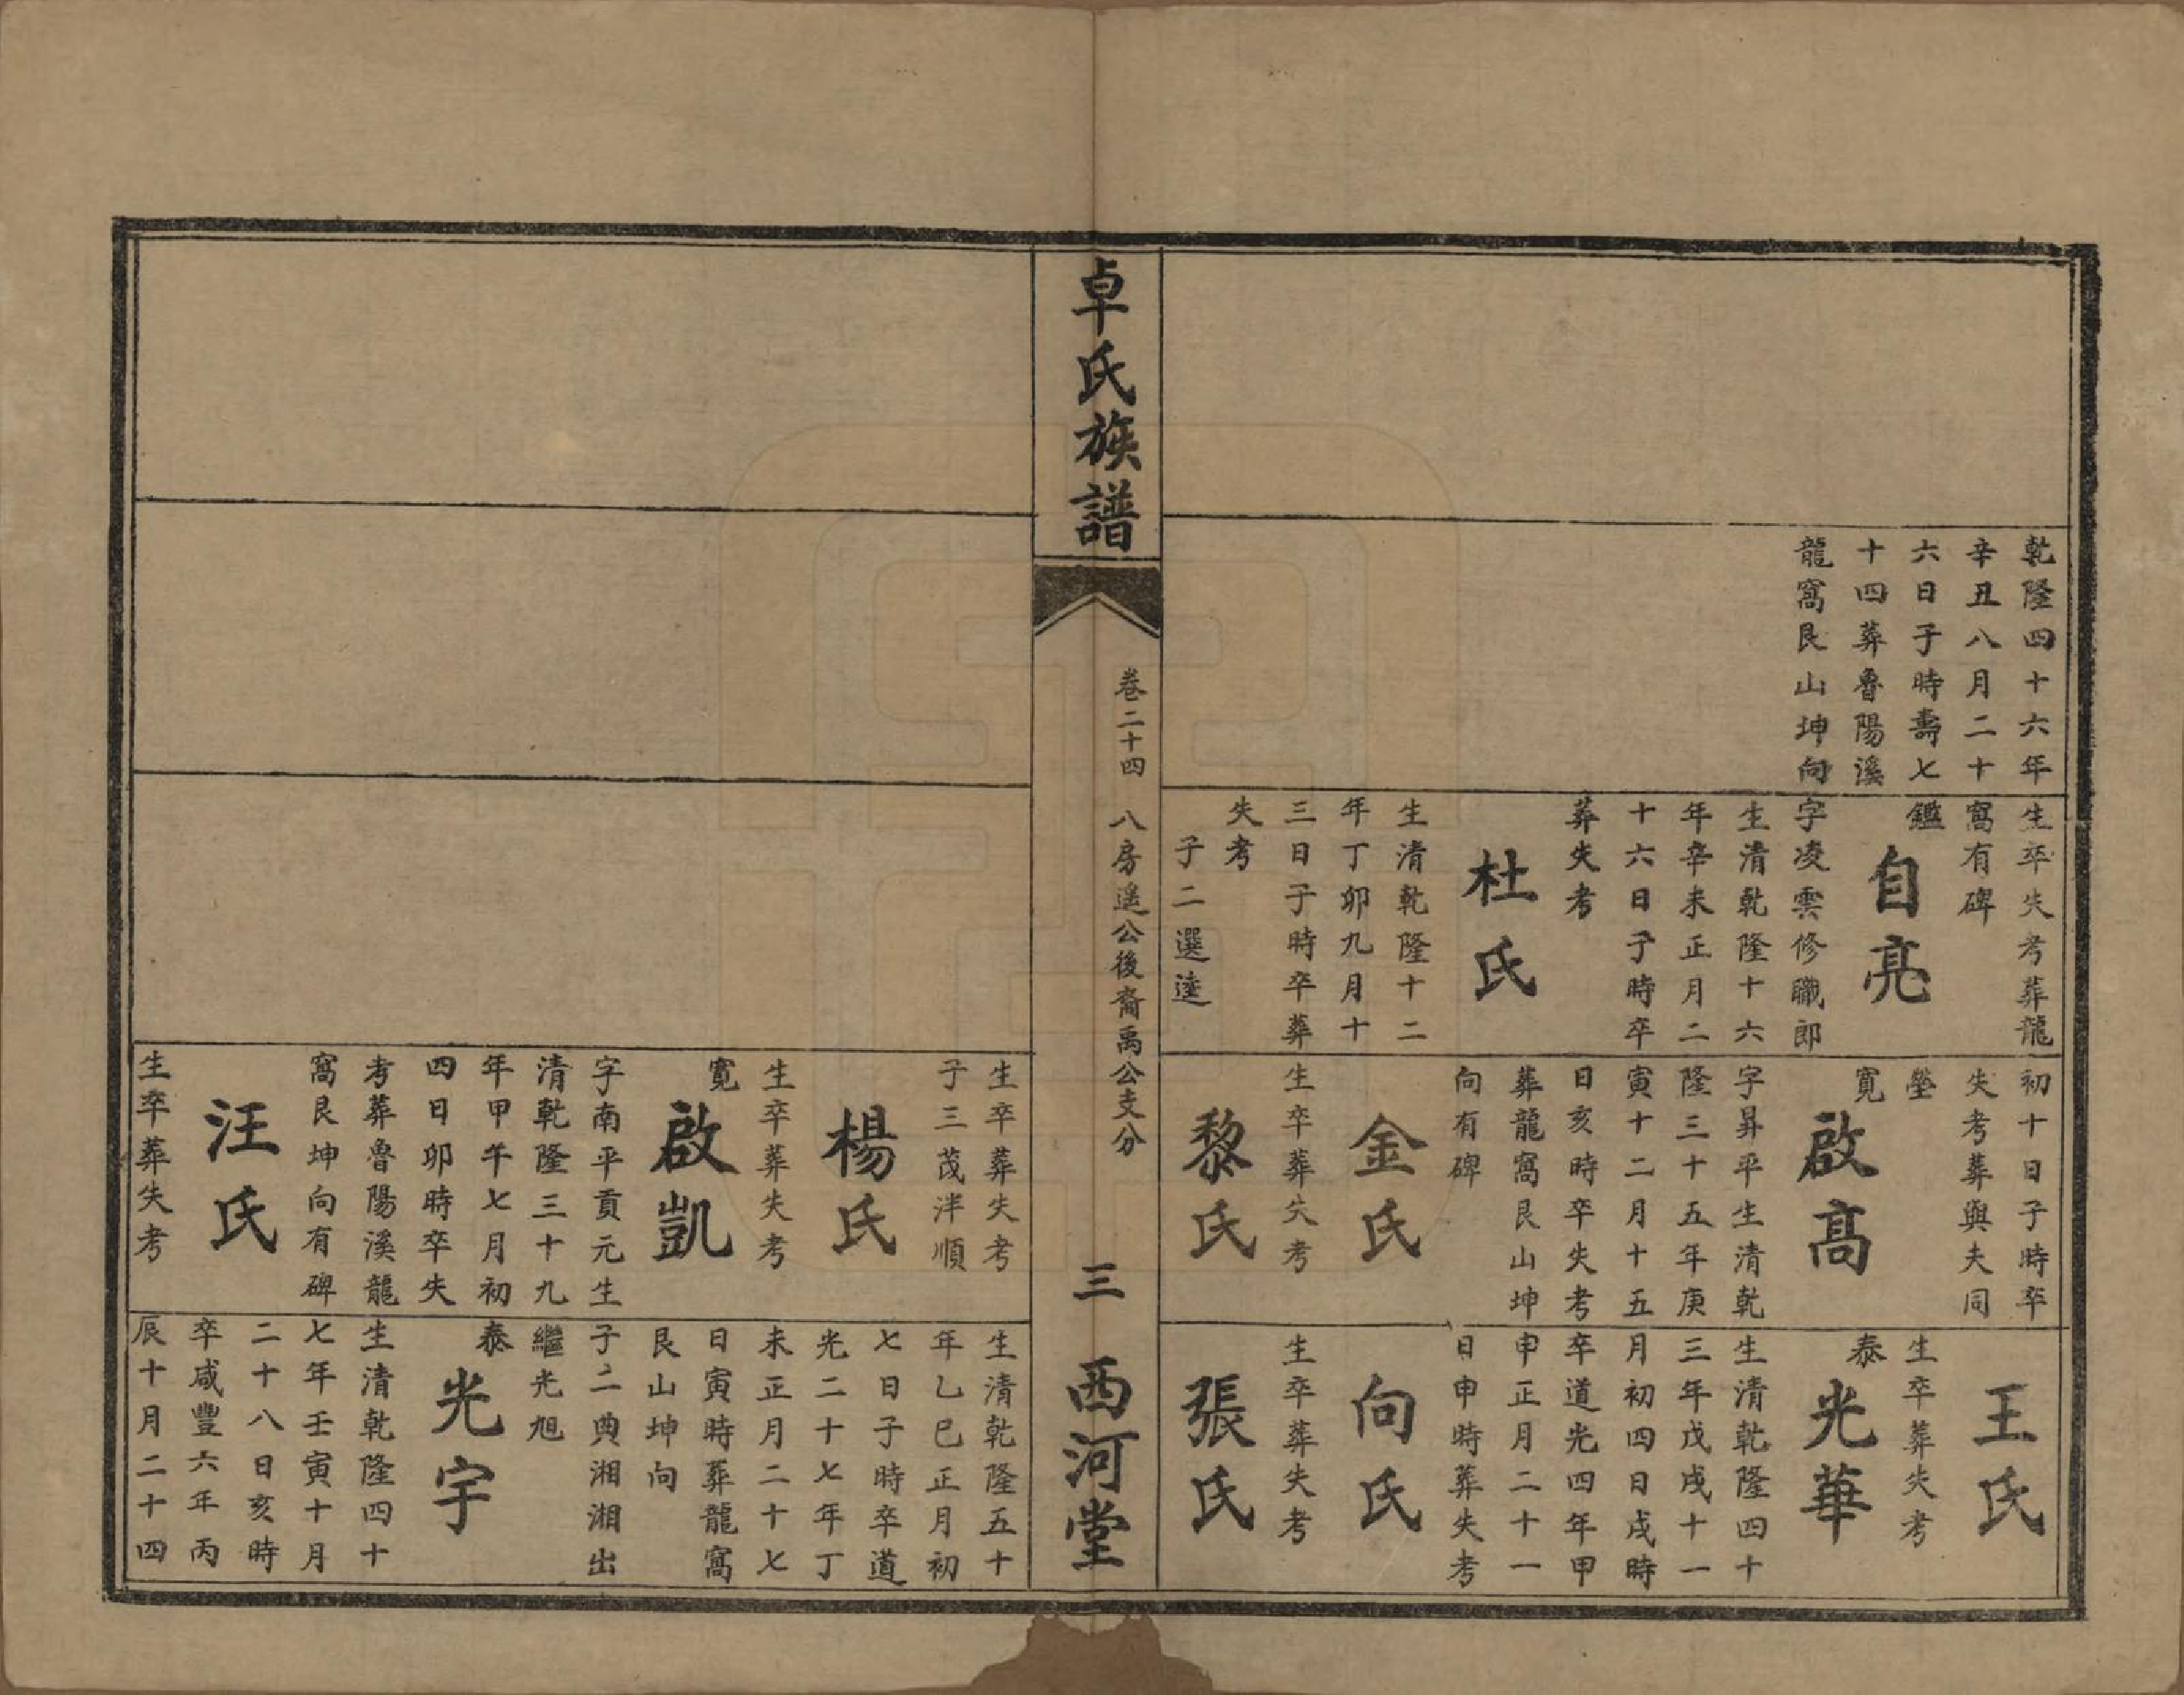 乾隆四十六年
辛丑八月二十
六日子時壽七
十四葬魯陽溪
龍窩艮山坤向
生卒失考葬龍
窩有碑
鑑
自亮
字凌雲修職郎
生清乾隆十六
年辛未正月二
十六日子時卒
葬失考
杜氏
生清乾隆十二
年丁卯九月十
三日子時卒葬
失考
子二選達
初十日子時卒
失考葬與夫同
塋
寬
啟高
字昇平生清乾
隆三十五年庚
寅十二月十五
日亥時卒失考
葬龍窩艮山坤
向有碑
金氏
生卒葬失考
黎氏
王氏
生卒葬失考
泰
光華
生清乾隆四十
三年戊戌十一
月初四日戌時
卒道光四年甲
申正月二十一
日申時葬失考
向氏
生卒葬失考
張氏
卓氏族譜
卷二十四 八房遥公後裔禹公支分
三
西河堂
生卒葬失考
子三茂泮順
楊氏
生卒葬失考
寬
啟凱
字南平貢元生
清乾隆三十九
年甲午七月初
四日卯時卒失
考葬魯陽溪龍
窩艮坤向有碑
汪氏
生卒葬失考
生清乾隆五十
年乙巳正月初
七日子時卒道
光二十七年丁
未正月二十七
日寅時葬龍窩
艮山坤向
子二典湘湘出
繼光旭
泰
光宇
生清乾隆四十
七年壬寅十月
二十八日亥時
卒咸豐六年丙
辰十月二十四